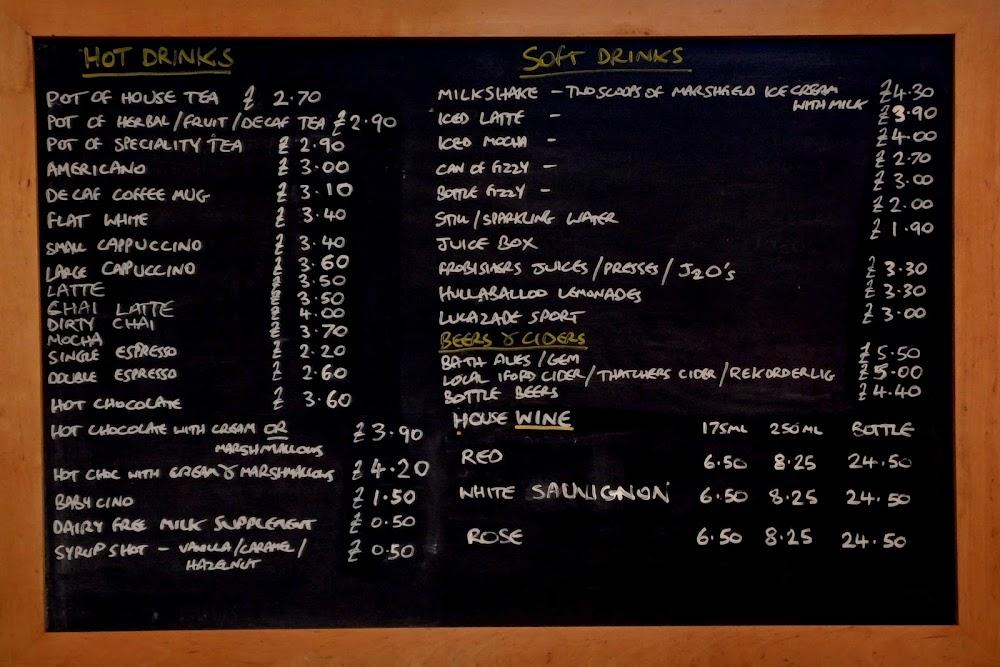 HOT DRINKS
POT OF HOUSE TEA £ 2.70
POT OF HERBAL/FRUIT/DECAF TEA £2.90
POT OF SPECIALITY TEA £ 2.90
AMERICANO £ 3.00
DECAF COFFEE MUG £ 3.10
FLAT WHITE £ 3.40
SMALL CAPPUCCINO £ 3.40
LARGE CAPPUCCINO £ 3.60
LATTE £ 3.50
CHAI LATTE £ 3.50
DIRTY CHAI £ 4.00
MOCHA £ 3.70
SINGLE ESPRESSO £ 2.20
DOUBLE ESPRESSO £ 2.60
HOT CHOCOLATE £ 3.60
HOT CHOCOLATE WITH CREAM OR £3.90
MARSHMALLOWS
HOT CHOC WITH CREAM & MARSHMALLOWS £4.20
BABYCINO £1.50
DAIRY FREE MILK SUPPLEMENT £0.50
SYRUP SHOT - VANILLA/CARAMEL/ £0.50
HAZELNUT
SOFT DRINKS
MILKSHAKE - TWO SCOOPS OF MARSHFIELD ICE CREAM £4.30
WITH MILK
ICED LATTE - £3.90
ICED MOCHA - £4.00
CAN OF FIZZY - £2.70
BOTTLE FIZZY - £3.00
STILL/SPARKLING WATER £2.00
JUICE BOX £1.90
FROBISHERS JUICES/PRESSES/J2O'S £3.30
HULLABALLOO LEMONADES £3.30
LUCAZADE SPORT £3.00
BEERS & CIDERS
BATH ALES/GEM £5.50
LOCAL IFORD CIDER/THATCHERS CIDER/REKORDERLIG £5.00
BOTTLE BEERS £4.40
HOUSE WINE 175ML 250ML BOTTLE
RED 6.50 8.25 24.50
WHITE SAUVIGNON 6.50 8.25 24.50
ROSE 6.50 8.25 24.50